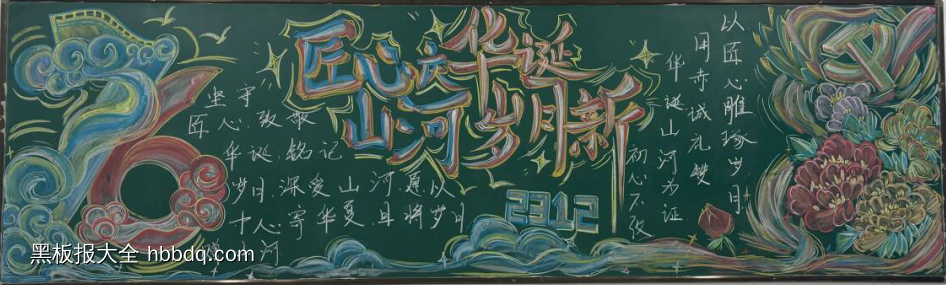 匠心庆华诞
山河岁月新
坚守
匠心,致敬
华诞,铭记
岁月,深爱山河,愿以
十人心,守华夏,且将岁月
河
2312
以匠心雕琢岁月
用赤诚礼赞
华诞山河为证
初心不改
黑板报大全 hbbdq.com